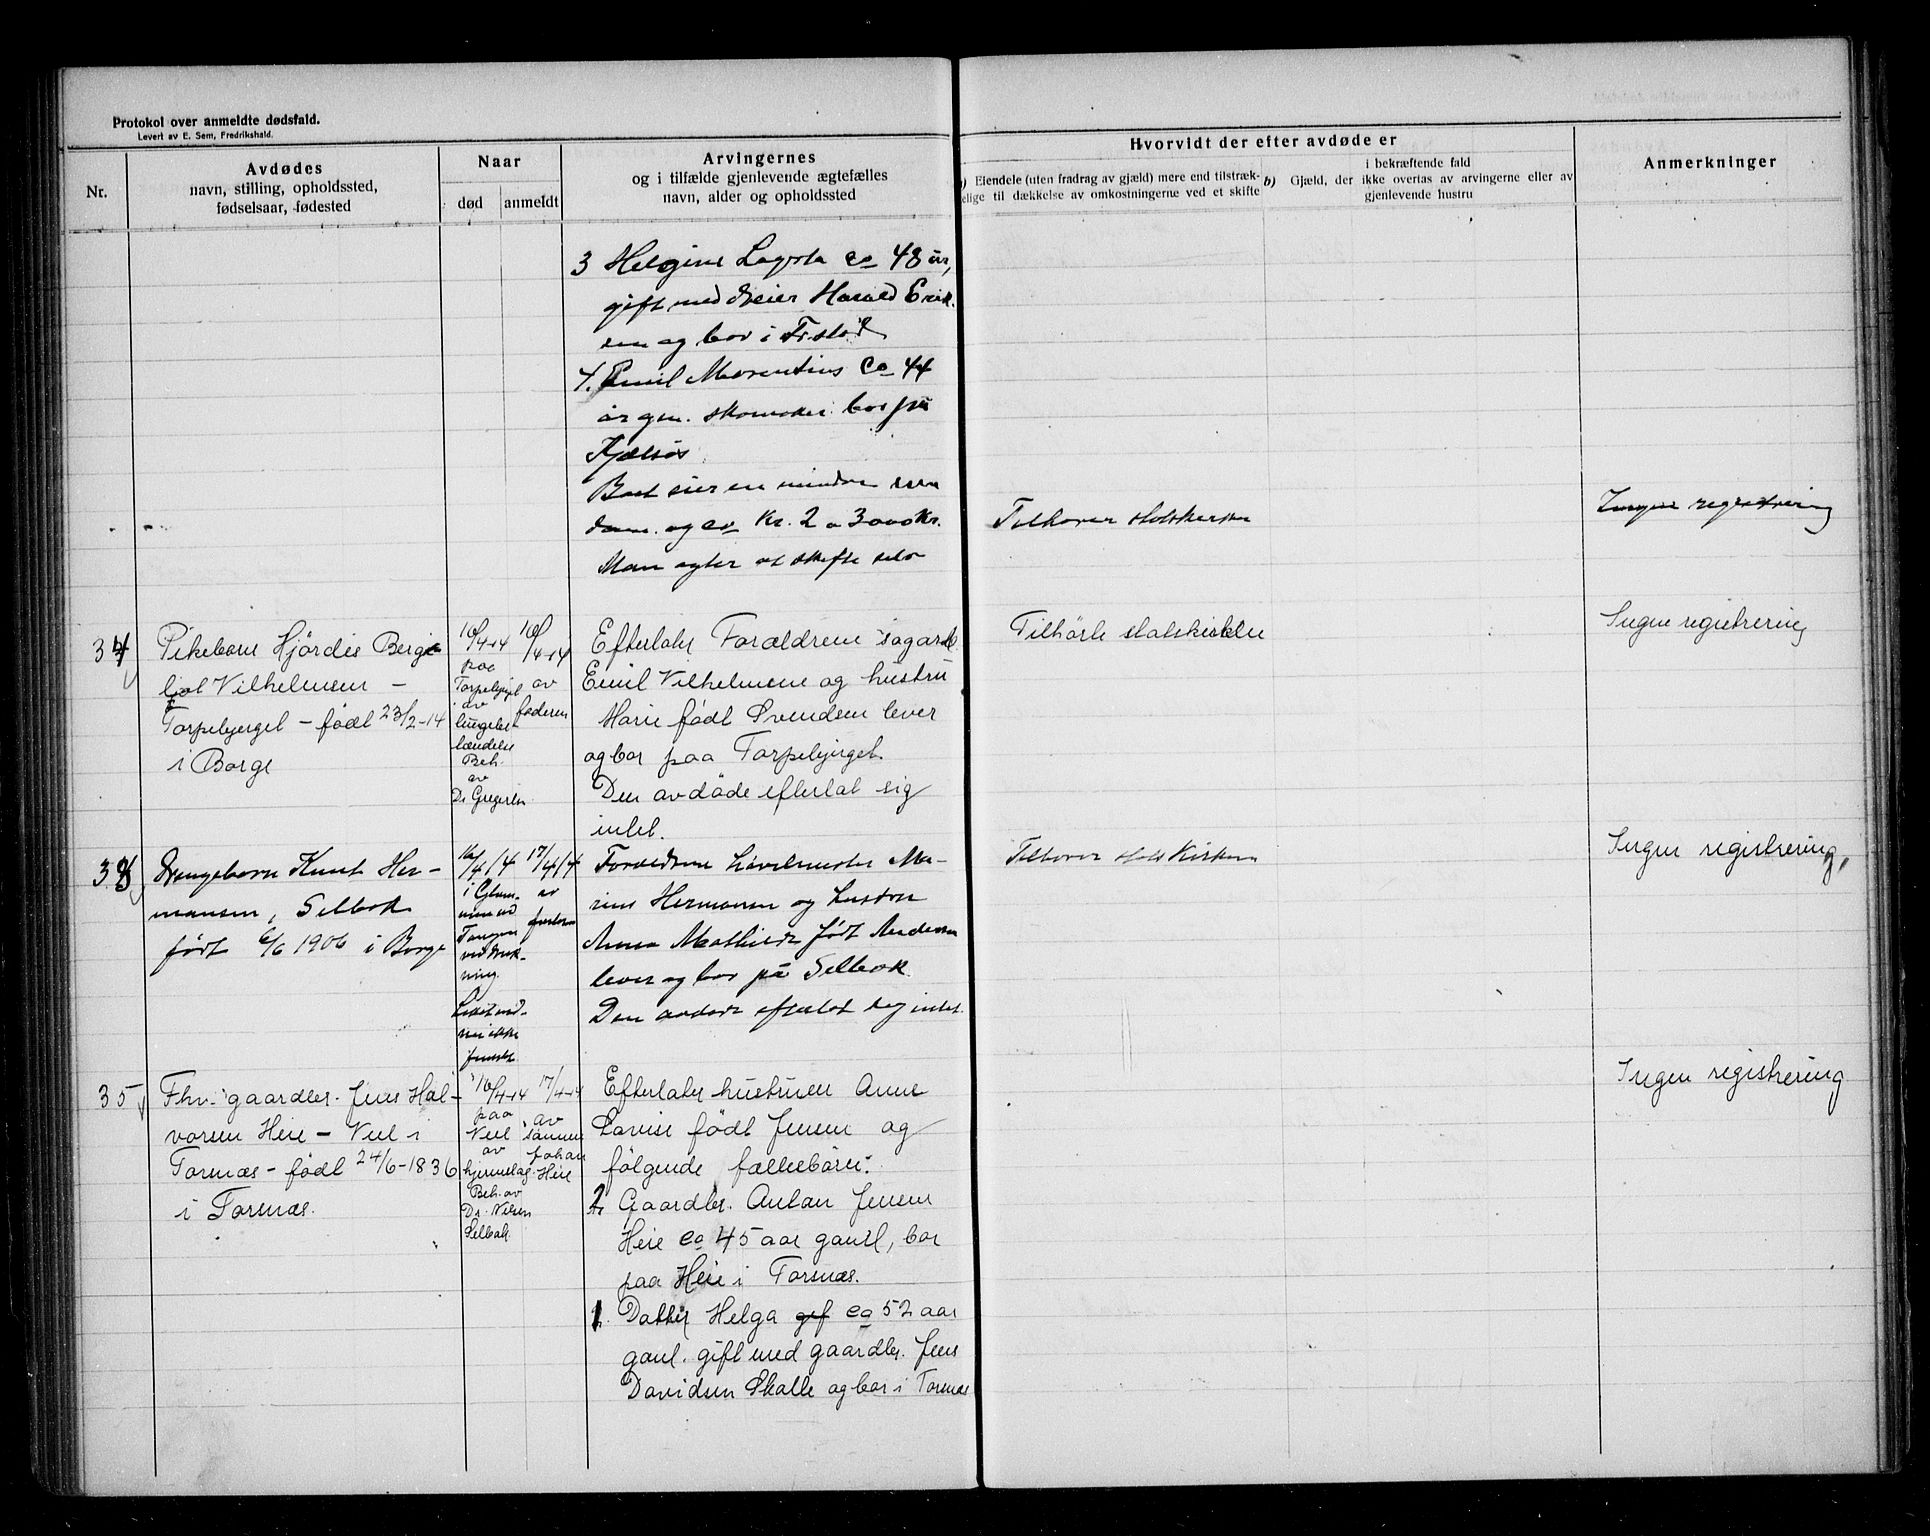 Protokol over anmeldte dødsfald.
Levert av E. Sem, Fredrikshald.
Nr.
Avdødes
navn, stilling, opholdssted,
fødselsaar, fødested
Naar
død
anmeldt
Arvingernes
og i tilfælde gjenlevende ægtefælles
navn, alder og opholdssted
Hvorvidt der efter avdøde er
a) Eiendele (uten fradrag av gjæld) mere end tilstræk-
kelige til dækkelse av omkostningerne ved et skifte
b) Gjæld, der i bekræftende fald
ikke overtas av arvingerne eller av
gjenlevende hustru
Anmerkninger
3 Helgine Lagosta ca 48 år,
gift med Harald Erik-
sen og bor i Fr.stad
4. Emil Morentius ca 44
år gm. skomaker bor på
Kjølsøs
Boet eier en mindre
og ca Kr. 2 a 3000 Kr.
Man agter at skifte selv
Tilhører statskirken
Ingen registrering
34
Pikebarn Hjørdis Bergl
jot Vilhelmsen -
Torpebjerget - født 23/2-14
i Borge
16/4-14
paa
Torpebjerget
av
lungebe-
tændelse
Beh.
av
Dr Gregersen
16/4-14
av
faderen
Efterlater Forældrene sagarb.
Emil Vilhelmsen og hustru
Marie født Svendsen lever
og bor paa Torpebjerget.
Den avdøde efterlat sig
intet.
Tilhørte statskirken
Ingen registrering
38
Drengebarn Knut Her-
mansen, Selbak
født 6/6 1906 i Borge
16/4 14
i Glom-
men ved
Tangen
ved druk-
ning.
Liket end-
nu ikke
fundet
17/4 14
av
faderen
Forældrene Ma-
rius Hermansen og hustru
Anna Mathilde født Andersen
lever og bor på Selbak.
Den avdøde efterlot seg intet.
Tilhører stats Kirken
Ingen registrering,
35
Fhv. gaardbr. Jens Hal-
vorsen Heie - Vel i
Torsnæs - født 24/6-1836
i Torsnæs.
16/4-14
paa
Vel
av
hjerneslag
Beh. av
Dr. Nilsen
Selbak
17/4-14
av
sønnen
Johan
Heie
Efterlater hustruen Anne
Lovise født Jensen og
følgende fællesbørn:
2. Gaardbr. Anton Jensen
Heie ca 45 aar gaml, bor
paa Heie i Torsnæs.
1. Datter Helga gif ca 52 aar
gaml. gift med gaardbr. Jens
Davidsen Skalle og bor i Torsnæs
Ingen registrering